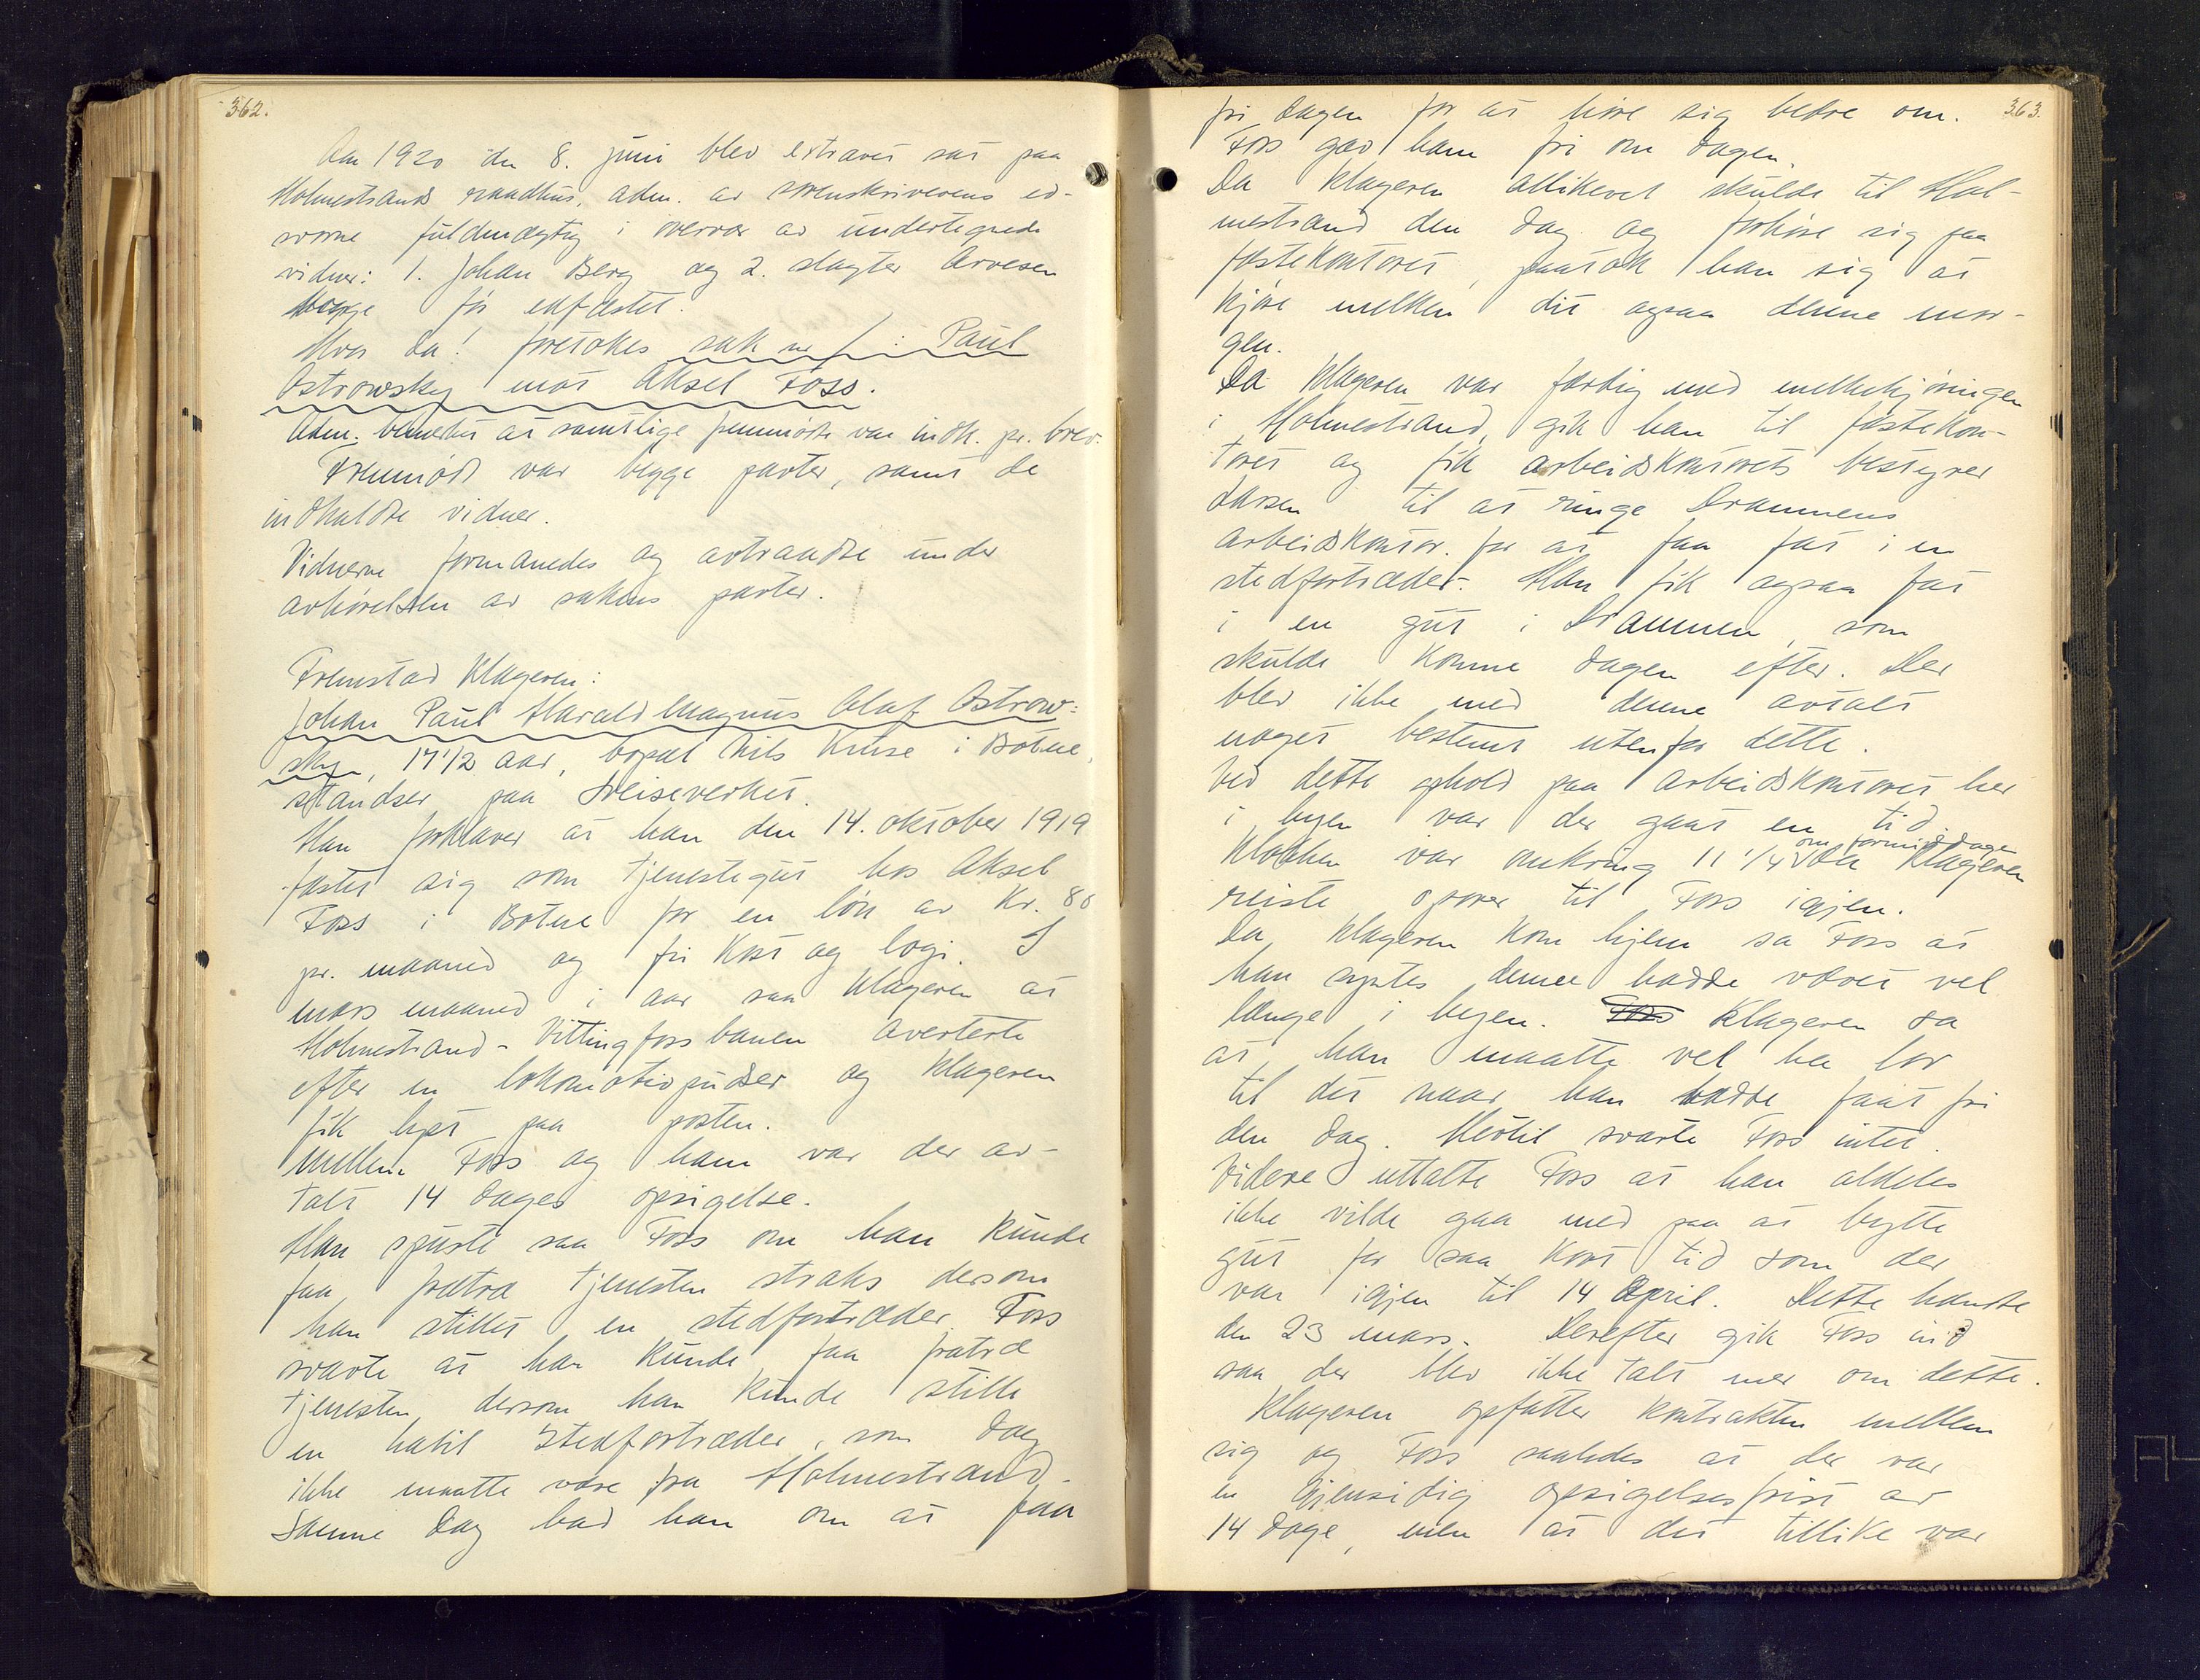 362.
Aar 1920 den 8. juni blev extraret sat paa
Holmestrands raadhus, adm. av sorenskriverens ed-
svorne fuldmægtig i overvær av undertegnede
vidner: 1. Johan Berg og 2. slagter Arvesen
begge før edfæstet.
Hvor da! foretokes sak nr / : Paul
Ostrowsky mot Aksel Foss.
Adm. bemerket at samtlige fremmødte var indk. pr. brev.
Fremmødt var begge parter, samt de
indkaldte vidner.
Vidnerne formanedes og avtraadte under
avhørelsen av sakens parter.
Fremstod klageren:
Johan Paul Harald Magnus Olaf Ostrow-
sky, 17 1/2 aar, bopæl Nils Kruse i Botne,
standser paa Dreiseverket.
Han forklarer at han den 14. oktober 1919
fæstet sig som tjenestegut hos Aksel
Foss i Botne for en løn av Kr. 80
pr. maaned og fri kost og logi. I
mars maaned i aar saa klageren at
Holmestrand-Vittingfossbanen averterte
efter en lokomotivpudser og klageren
fik lyst paa posten.
Mellem Foss og ham var der av-
talt 14 dages opsigelse.
Han spurte saa Foss om han kunde
faa fratræ tjenesten straks dersom
han stillet en stedfortræder. Foss
svarte at han kunde faa fratræ
tjenesten, dersom han kunde stille
en habil stedfortræder, som dog
ikke maatte være fra Holmestrand.
Samme dag bad han om at faa
363.
fri dagen for at høre sig bedre om.
Foss gav ham fri om dagen.
Da klageren allikevel skulde til Hol-
mestrand den dag og forhøre sig paa
fæstekontoret, paatok han sig at
kjøre melken dit ogsaa denne mor-
gen.
Da klageren var færdig med melkekjøringen
i Holmestrand, gik han til fæstekon-
toret og fik arbeidskontorets bestyrer
Larsen til at ringe Drammens
arbeidskontor. for at faa fat i en
stedfortræder. Han fik ogsaa fat
i en gut i Drammen, som
skulde komme dagen efter. Der
blev ikke med denne avtalt
noget bestemt utenfor dette.
Ved dette ophold paa arbeidskontoret her
i byen var der gaat en tid.
om formiddagen
Klokken var omkring 11 1/4 da klageren
reiste opover til Foss igjen.
Da klageren kom hjem sa Foss at
han syntes denne hadde været vel
længe i byen. Foss Klageren sa
at han maatte vel ha lov
til det naar han hadde faat fri
den dag. Hertil svarte Foss intet.
Videre uttalte Foss at han aldeles
ikke vilde gaa med paa at bytte
gut for saa kort tid som der
var igjen til 14 April. Dette hændte
den 23 mars. Derefter gik Foss ind
saa der blev ikke talt mer om dette.
Klageren opfatter kontrakten mellem
sig og Foss saaledes at der var
en gjensidig opsigelsesfrist av
14 dage, men at det tillike var